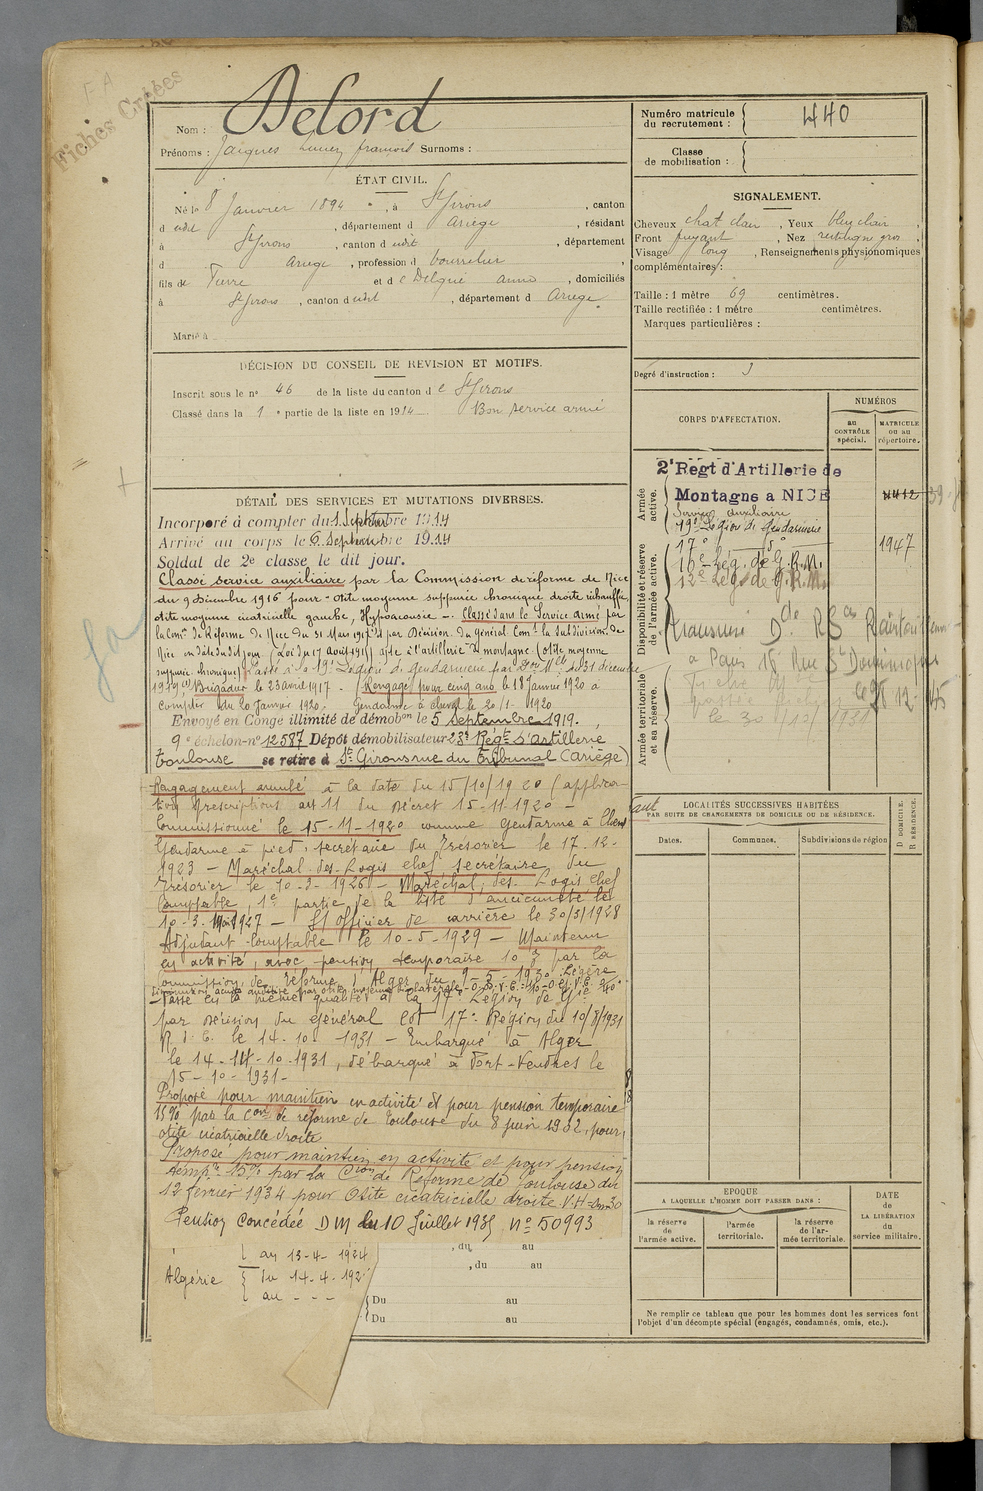 Fiches Créées
Nom : Delord
Prénoms : Jacques François Surnoms :
Numéro matricule
du recrutement : 440
Classe
de mobilisation :
ÉTAT CIVIL.
Né le 8 Janvier 1894, à St Girons, canton
dudit, département d Ariège, résidant
à St Girons, canton dudit, département
d Ariège, profession d bourrelier,
fils de Pierre et d e Delqué Anna, domiciliés
à St Girons, canton dudit, département d Ariège.
Marié à
SIGNALEMENT.
Cheveux chat. clair, Yeux bleu clair,
Front fuyant, Nez rectiligne gros,
Visage long, Renseignements physionomiques
complémentaires :
Taille : 1 mètre 69 centimètres.
Taille rectifiée : 1 mètre centimètres.
Marques particulières :
Degré d'instruction : 3
DÉCISION DU CONSEIL DE REVISION ET MOTIFS.
Inscrit sous le no 46 de la liste du canton d e St Girons
Classé dans la 1e partie de la liste en 1914. Bon service armé
DÉTAIL DES SERVICES ET MUTATIONS DIVERSES.
Incorporé à compter du 1 Septembre 1914
Arrivé au corps le 6 Septembre 1914
Soldat de 2e classe le dit jour.
Classé service auxiliaire par la Commission de réforme de Nice
du 9 décembre 1916 pour otite moyenne suppurée chronique droite réchauffée,
otite moyenne cicatricielle gauche, Hypoacousie. Classé dans le Service Armé par
la Comon de Réforme de Nice du 31 Mars 1917 et par Décision du Général Comt la Subdivision de
Nice en date du dit jour. (Loi du 17 août 1915) apte à l'artillerie de montagne (otite moyenne
suppurée chronique) Passé à la 19e Légion de gendarmerie par du 31 décembre
1919 Brigadier le 23 avril 1917. Rengagé pour cinq ans le 18 Janvier 1920 à
compter du 20 Janvier 1920. Gendarme à cheval le 20/1 1920
Envoyé en Congé illimité de démobon le 5 Septembre 1919.
9e échelon no 12587 Dépôt démobilisateur 23e Régt d'Artillerie
Toulouse se retire à St Girons rue du Tribunal (Ariège)
Rengagement annulé à la date du 15/10/1920 (applica-
tion prescriptions art 11 du décret 15-11-1920 -
Commissionné le 15-11-1920 comme gendarme à
Gendarme à pied, secrétaire du Trésorier le 17-12-
1923 - Maréchal-des-Logis chef secrétaire du
Trésorier le 10-3-1926 - Maréchal-des-Logis chef
Comptable, 1e partie de la liste d'ancienneté le
10-3-1927 - S/ officier de carrière le 30/3/1928
Adjudant Comptable le 10-5-1929 - Maintenu
en activité, avec pension temporaire 10% par la
Commission de Réforme d'Alger du 9-5-1930 Légère
diminution acuité auditive par otite moyenne
Passé en la même qualité à la 17e Légion de Gie
par décision du Général Cdt 17e Région du 10/8/1931
R.d.C. le 14-10-1931 - Embarqué à Alger
le 14-10-1931, débarqué à Port-Vendres le
15-10-1931 -
Proposé pour maintien en activité et pour pension temporaire
15% par la Con de réforme de Toulouse du 8 juin 1932, pour
otite cicatricielle droite
Proposé pour maintien en activité et pour pension
temp. 15% par la Cion de Réforme de Toulouse du
12 février 1934 pour Otite cicatricielle droite
Pension Concédée DM du 10 Juillet 1935 No 50993
Algérie
au 13-4-1924
du 14-4-192
au - - -
, du au
, du au
Du au
Du au
CORPS D'AFFECTATION.
NUMÉROS
au
CONTRÔLE
spécial.
MATRICULE
ou au
répertoire.
Armée
active.
2e Régt d'Artillerie de
Montagne a NICE
Service auxiliaire
19e Légion de Gendarmerie
1947
Disponibilité et réserve
de l'armée active.
17e do
16e Lég. de G.R.M.
12e Lég. de G.R.M.
Armée territoriale
et sa réserve.
à Paris 18 Rue St Dominique
le 25-12-45
le 30/10/1931
LOCALITÉS SUCCESSIVES HABITÉES
PAR SUITE DE CHANGEMENTS DE DOMICILE OU DE RÉSIDENCE.
Dates.
Communes.
Subdivisions de région
D DOMICILE.
R RÉSIDENCE.
EPOQUE
A LAQUELLE L'HOMME DOIT PASSER DANS :
la réserve
de
l'armée active.
l'armée
territoriale.
la réserve
de l'ar-
mée territoriale.
DATE
de
LA LIBÉRATION
du
service militaire.
Ne remplir ce tableau que pour les hommes dont les services font
l'objet d'un décompte spécial (engagés, condamnés, omis, etc.).